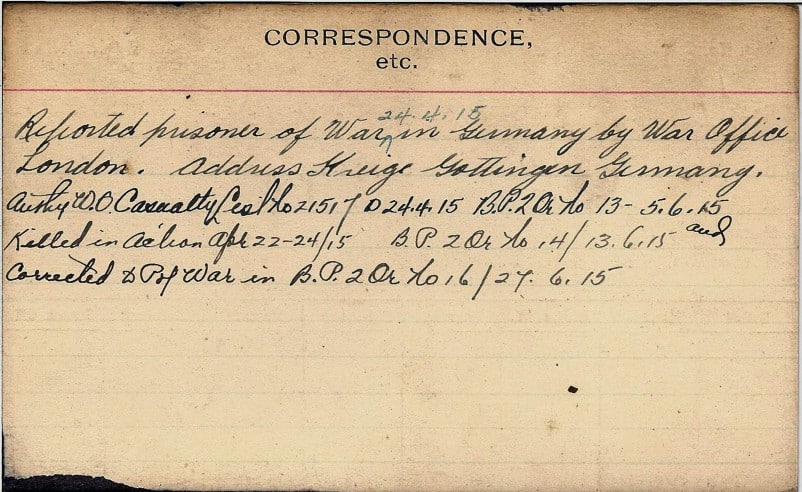 CORRESPONDENCE,
etc.
24.4.15
Reported prisoner of War in Germany by War Office
London. Address Kreige Gottingen Germany.
Authy W.O. Casualty List No 21517 D 24.4.15 B.P. 2 Or No 13 - 5.6.15
Killed in Action Apr 22-24/15 B.P. 2 Or No 14/13.6.15 and
Corrected to P of War in B.P. 2 Or No 16/27.6.15